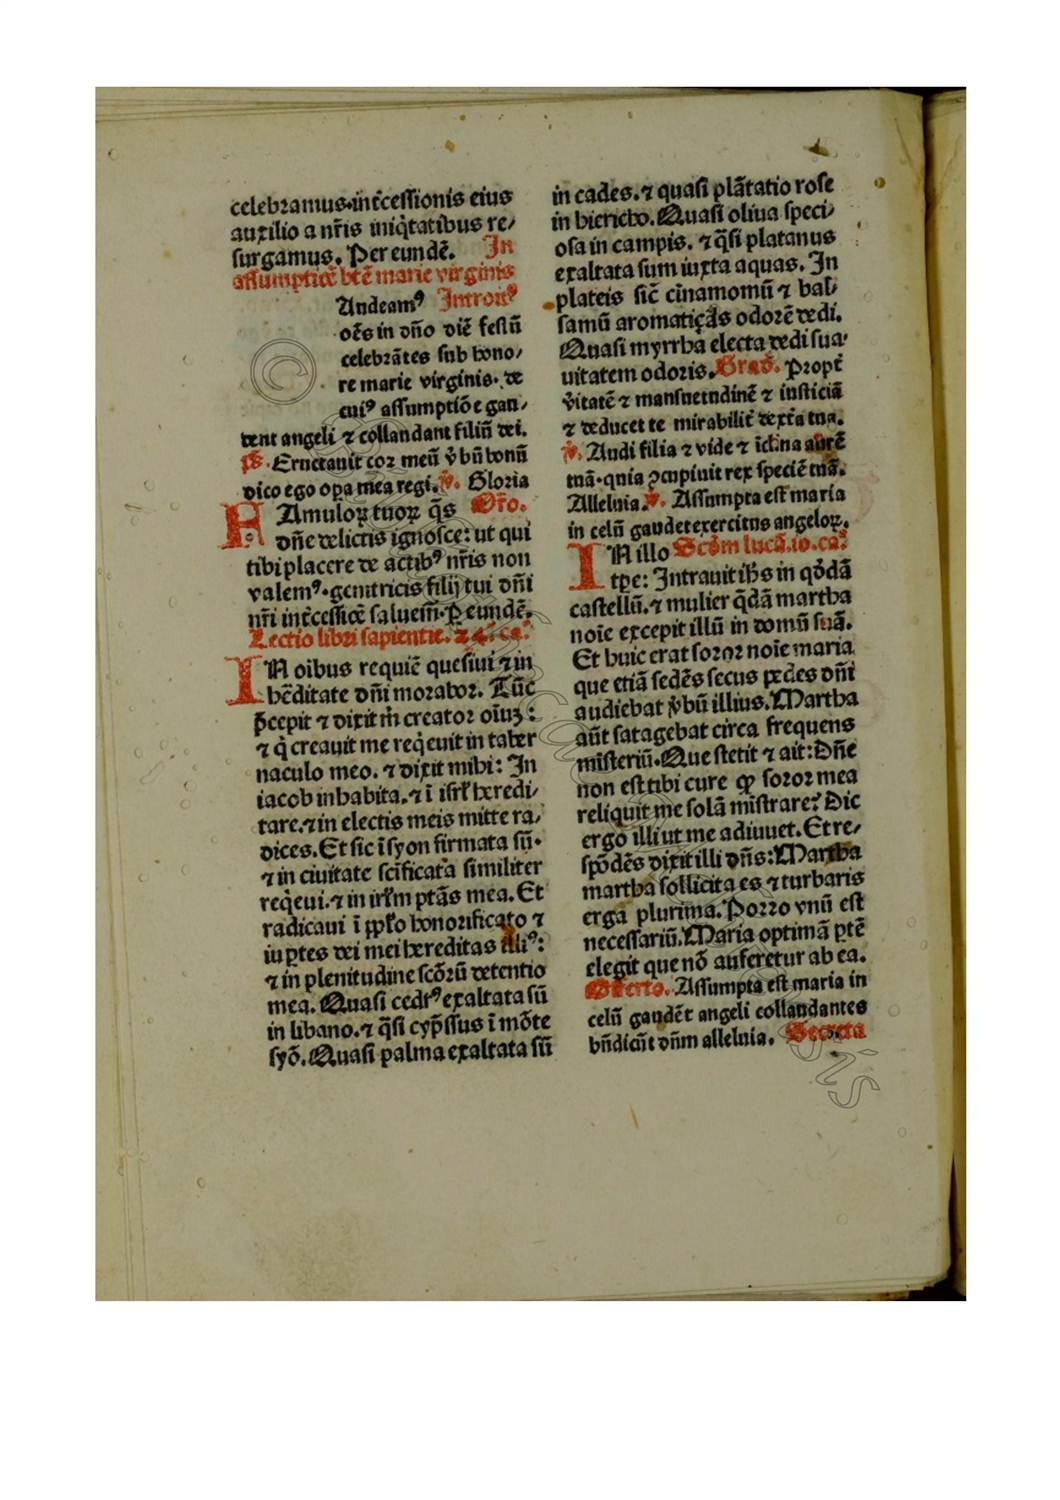 celebramus.int̄cessionis eius
auxilio a nr̄is iniq̇tatibus re/
surgamus. Per eundē. In
assumptiōe btē marie virginis
Audeamꝰ Introitꝰ
oēs in dn̄o diē festū
celebrātes sub hono/
re marie virginis. de
cuiꝰ assumptiōe gau/
dent angeli ⁊ collaudant filiū dei.
ps̄. Eructauit cor meū v̓bū bonū
dico ego oꝑa mea regi. ℣. Gloria
FAmuloꝝ tuoꝝ q̄s Or̄o.
dn̄e delictis ignosce: ut qui
tibi placere de actibꝰ nr̄is non
valemꝰ. genitricis filij tui dn̄i
nr̄i int̄cessiōe saluem̄. ꝑ eundē.
Lectio libri sapientie. 24. ca.
IN oībus requiē quesiui ⁊ in
hēditate dn̄i morabor. Tūc
p̄cepit ⁊ dixit m̓ creator oīuꝫ:
⁊ q̇ creauit me req̇euit in taber
naculo meo. ⁊ dixit mihi: In
iacob inhabita. ⁊ ī isrl̄ heredi/
tare. ⁊ in electis meis mitte ra/
dices. Et sic ī syon firmata sū.
⁊ in ciuitate scīficata similiter
req̇eui. ⁊ in irlm̄ ptās mea. Et
radicaui ī pp̄lo honorificato ⁊
in ꝑtes dei mei hereditas illiꝰ:
⁊ in plenitudine scōrū detentio
mea. Quasi cedrꝰ exaltata sū
in libano. ⁊ q̄si cyp̄ssus ī mōte
syō. Quasi palma exaltata sū
in cades. ⁊ quasi plātatio rose
in hiericho. Quasi oliua speci/
osa in campis. ⁊ q̄si platanus
exaltata sum iuxta aquas. In
plateis sic̄ cinamomū ⁊ bal/
samū aromatiçās odorē dedi.
Quasi myrrha electa dedi sua/
uitatem odoris. Grad̄. Propt̄
v̓itatē ⁊ mansuetudinē ⁊ iusticiā
⁊ deducet te mirabilit̄ dext̓a tua.
℣. Audi filia ⁊ vide ⁊ īclina aurē
tuā. quia ꝯcupiuit rex speciē tuā.
Alleluia. ℣. Assumpta est maria
in celū gaudet exercitus angeloꝝ.
IN illo Scd̄m lucā. io. ca.
tp̄e: Intrauit ih̄s in qd̓dā
castellū. ⁊ mulier q̄dā martha
noīe excepit illū in domū suā.
Et huic erat soror noīe maria
que etiā sedēs secus pedes dn̄i
audiebat v̓bū illius. Martha
aūt satagebat circa frequens
misteriū. Que stetit ⁊ ait: Dn̄e
non est tibi cure ꝙ soror mea
reliquit me solā mīstrare? Dic
ergo illi ut me adiuuet. Et re/
spōdēs dixit illi dn̄s: Martha
martha sollicita es ⁊ turbaris
erga plurima. Porro vnū est
necessariū. Maria optimā ꝑtē
elegit que nō auferetur ab ea.
Offerto. Assumpta est maria in
celū gaudēt angeli collaudantes
bn̄dicūt dn̄m alleluia. Secreta